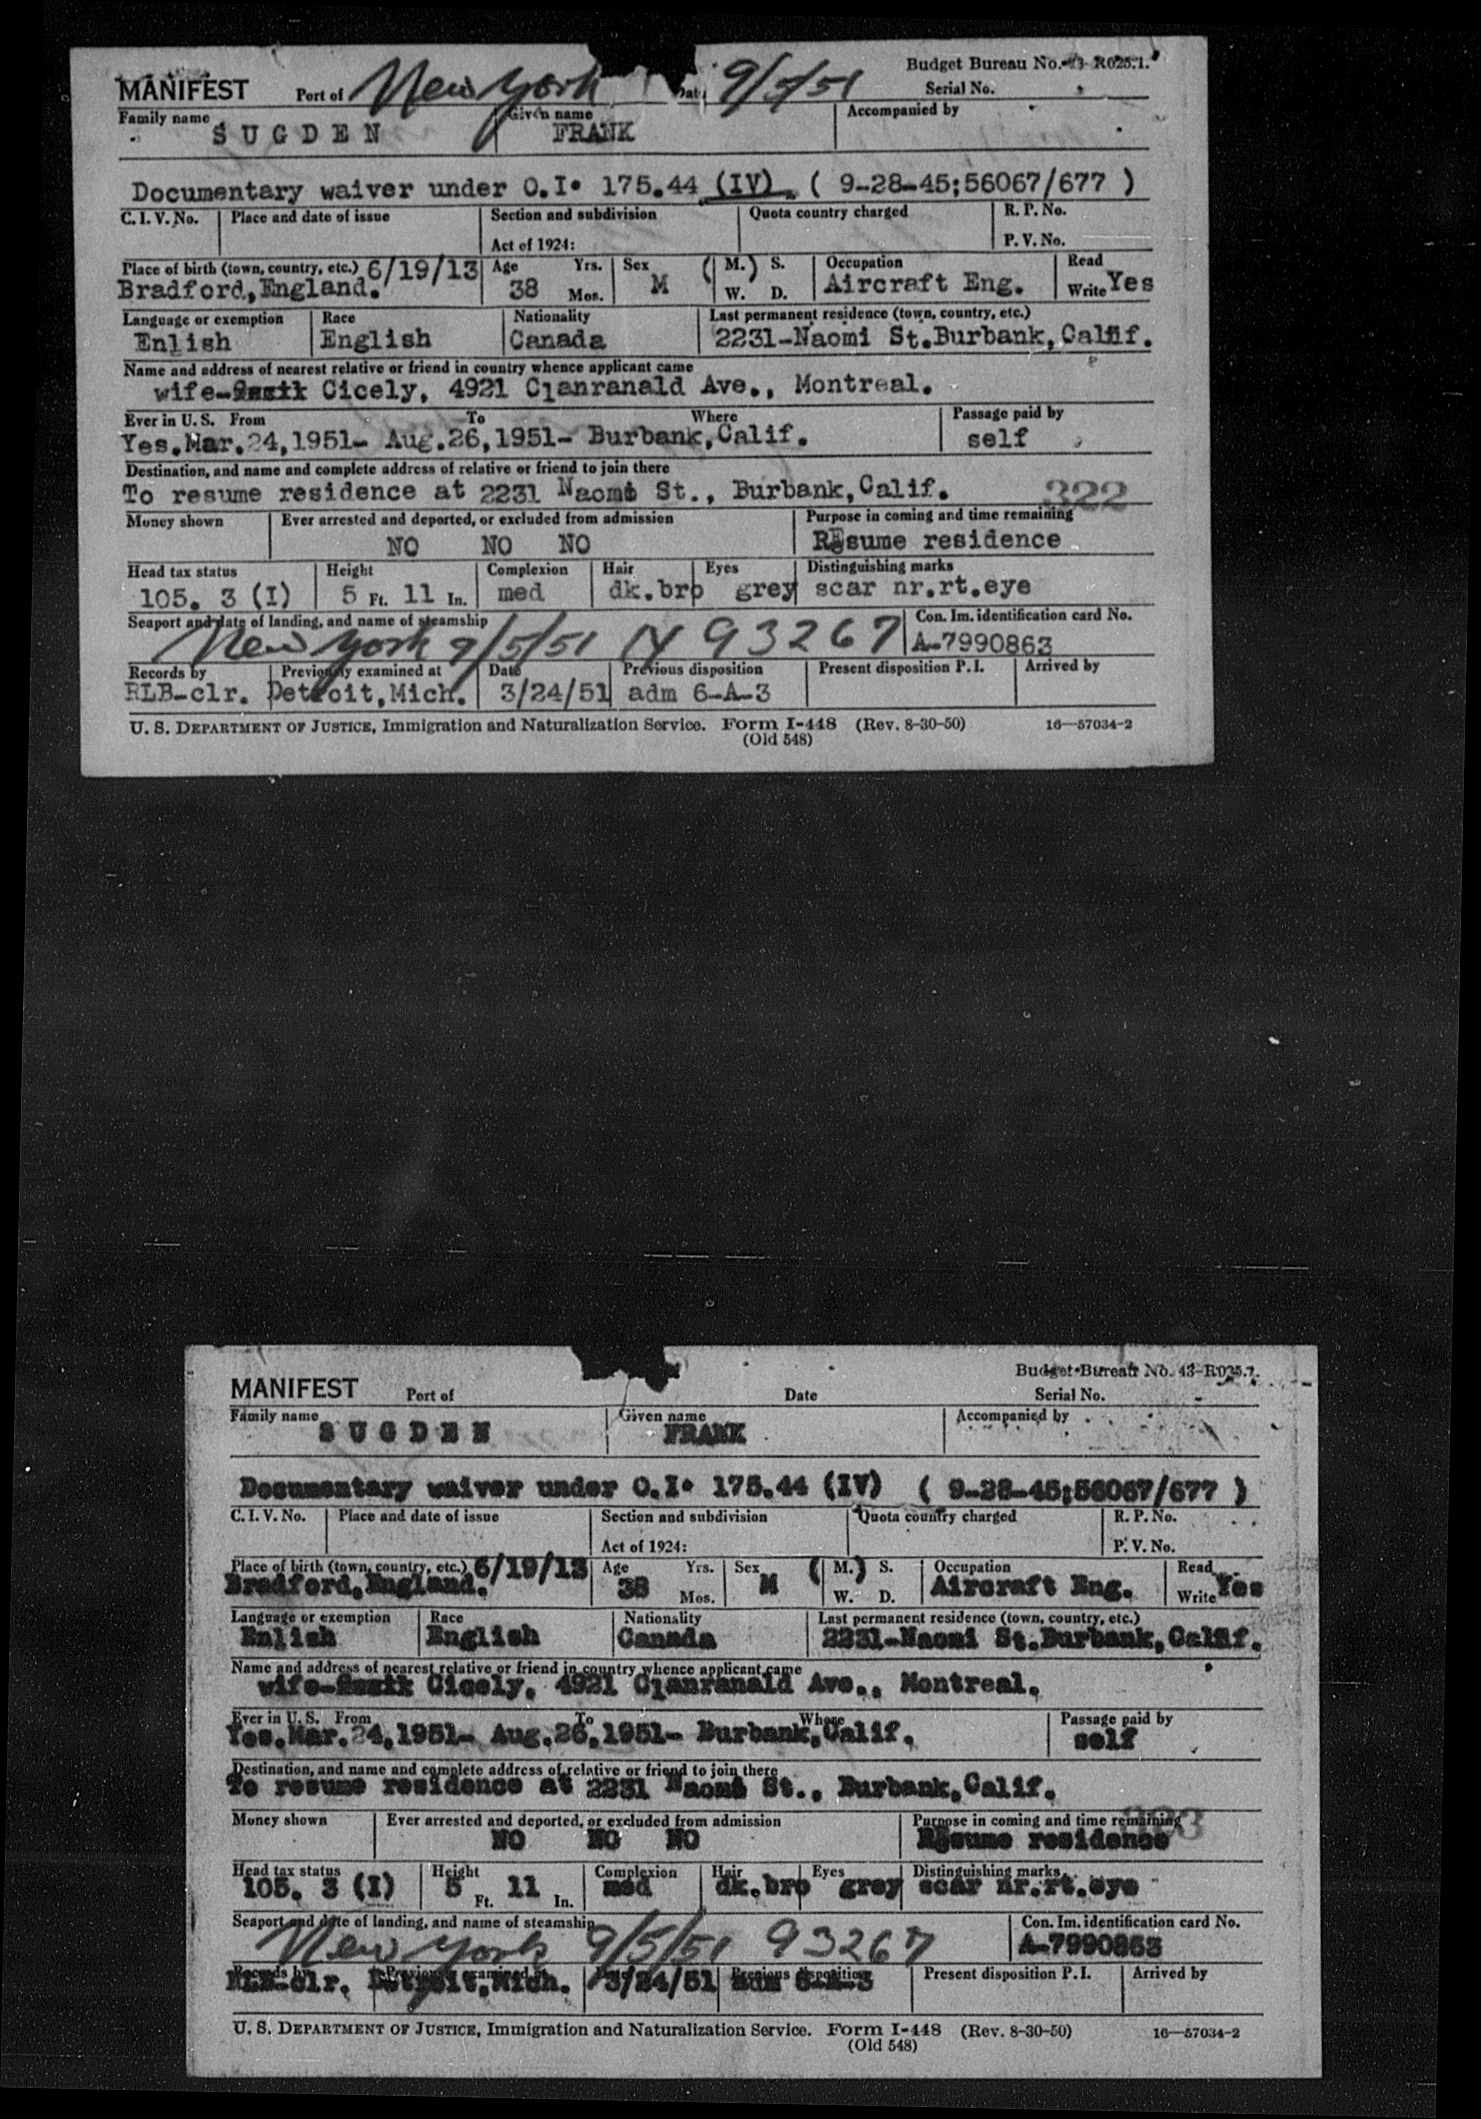 MANIFEST Port of New York Date 9/5/51 Budget Bureau No. 43-R025.1.
Serial No.
Family name Given name Accompanied by
SUGDEN FRANK
Documentary waiver under O.I. 175.44 (IV). ( 9-28-45;56067/677 )
C. I. V. No. Place and date of issue Section and subdivision Quota country charged R. P. No.
Act of 1924: P. V. No.
Place of birth (town, country, etc.) 6/19/13 Age Yrs. Sex ( M. ) S. Occupation Read
Bradford, England. 38 Mos. M W. D. Aircraft Eng. Write Yes
Language or exemption Race Nationality Last permanent residence (town, country, etc.)
Enlish English Canada 2231-Naomi St.Burbank, Calif.
Name and address of nearest relative or friend in country whence applicant came
wife- Cicely, 4921 Clanranald Ave., Montreal.
Ever in U. S. From To Where Passage paid by
Yes.Mar.24,1951- Aug.26,1951- Burbank,Calif. self
Destination, and name and complete address of relative or friend to join there
To resume residence at 2231 Naomi St., Burbank,Calif. 322
Money shown Ever arrested and deported, or excluded from admission Purpose in coming and time remaining
NO NO NO Resume residence
Head tax status Height Complexion Hair Eyes Distinguishing marks
105. 3 (I) 5 Ft. 11 In. med dk.bro grey scar nr.rt.eye
Seaport and date of landing, and name of steamship Con. Im. identification card No.
New York 9/5/51 N 93267 A-7990863
Records by Previously examined at Date Previous disposition Present disposition P. I. Arrived by
RLB-clr. Detroit,Mich. 3/24/51 adm 6-A-3
U. S. DEPARTMENT OF JUSTICE, Immigration and Naturalization Service. Form I-448 (Rev. 8-30-50) 16—57034-2
(Old 548)
MANIFEST Port of Date Budget Bureau No. 43-R025.7.
Serial No.
Family name Given name Accompanied by
SUGDEN FRANK
Documentary waiver under O.I. 175.44 (IV) ( 9-28-45;56067/677 )
C. I. V. No. Place and date of issue Section and subdivision Quota country charged R. P. No.
Act of 1924: P. V. No.
Place of birth (town, country, etc.) 6/19/13 Age Yrs. Sex ( M. ) S. Occupation Read
Bradford, England. 38 Mos. M W. D. Aircraft Eng. Write Yes
Language or exemption Race Nationality Last permanent residence (town, country, etc.)
Enlish English Canada 2231-Naomi St.Burbank, Calif.
Name and address of nearest relative or friend in country whence applicant came
wife- Cicely, 4921 Clanranald Ave., Montreal.
Ever in U. S. From To Where Passage paid by
Yes.Mar.24,1951- Aug.26,1951- Burbank,Calif. self
Destination, and name and complete address of relative or friend to join there
To resume residence at 2231 Naomi St., Burbank,Calif.
Money shown Ever arrested and deported, or excluded from admission Purpose in coming and time remaining
NO NO NO Resume residence
Head tax status Height Complexion Hair Eyes Distinguishing marks
105. 3 (I) 5 Ft. 11 In. med dk.bro grey scar nr.rt.eye
Seaport and date of landing, and name of steamship Con. Im. identification card No.
New York 9/5/51 93267 A-7990863
Records by Previously examined at Previous disposition Present disposition P. I. Arrived by
RLB-clr. Detroit,Mich. 3/24/51 adm 6-A-3
U. S. DEPARTMENT OF JUSTICE, Immigration and Naturalization Service. Form I-448 (Rev. 8-30-50) 16—57034-2
(Old 548)